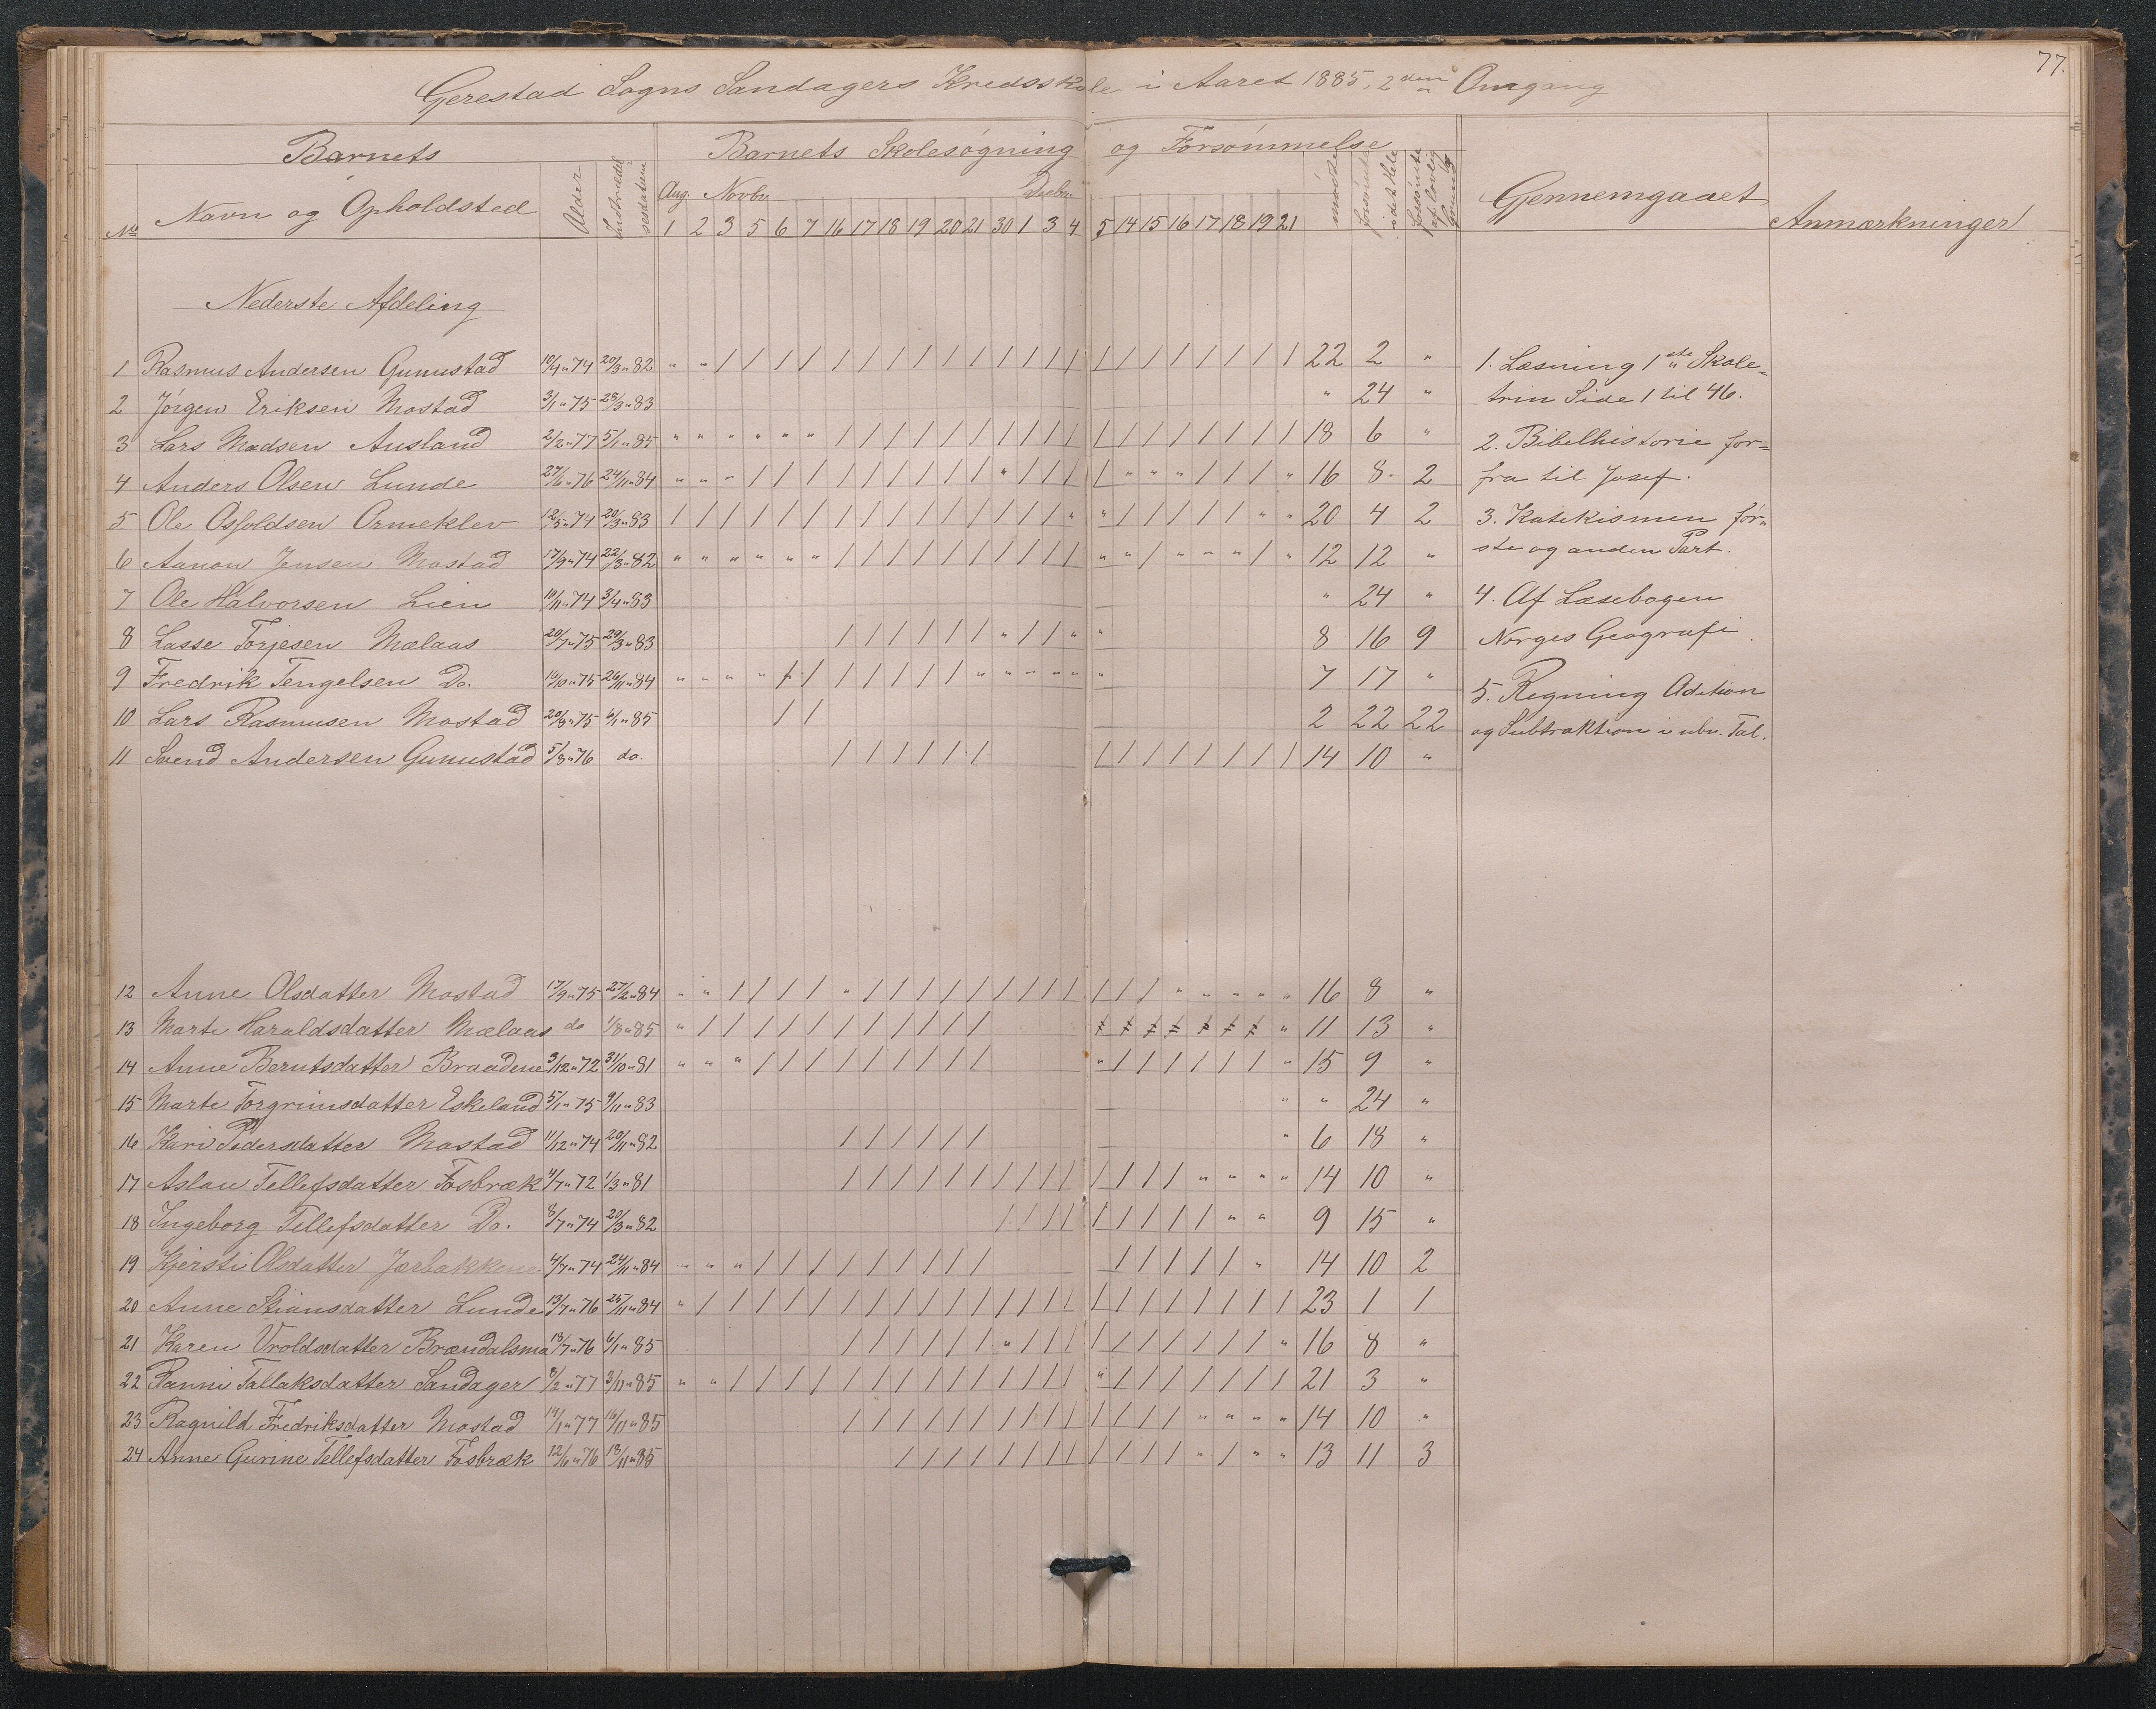 77.
Gerestad Sogns Sandagers Kredsskole i Aaret 1885, 2den Omgang
Barnets Barnets Skolesøgning og Forsømmelse
No Navn og Opholdsted Alder Indtrædelsesdatum Aug. Novbr. Decbr. mødte forsømte i det Hele forsømte af lovlig Grund Gjennemgaaet Anmærkninger
1 2 3 5 6 7 16 17 18 19 20 21 30 1 3 4 5 14 15 16 17 18 19 21
Nederste Afdeling
1 Rasmus Andersen Gunustad 10/4 " 74 20/3 " 82 " " / / / / / / / / / / / / / / / / / / / / / / 22 2 "
2 Jørgen Eriksen Mostad 3/1 " 75 28/3 " 83 " 24 "
3 Lars Madsen Ausland 2/2 " 77 5/1 " 85 " " " " " " / / / / / / / / / / / / / / / / / / 18 6 "
4 Anders Olsen Lunde 27/6 " 76 24/11 " 84 " " " / / / / / / / / / " / / / / " " " / / / " 16 8 2
5 Ole Osfoldsen Ormeklev 12/5 " 74 20/3 " 83 / / / / / / / / / / / / / / / " " / / / / / " " 20 4 2
6 Aanon Jensen Mostad 17/9 " 74 22/3 " 82 " " " " " " / / / / / / / / / / " " / " " " / " 12 12 "
7 Ole Halvorsen Lien 10/11 " 74 3/4 " 83 " 24 "
8 Lasse Torjesen Mælaas 20/7 " 75 29/3 " 83 / / / / / / " / / " " 8 16 9
9 Fredrik Tengelsen Do. 16/10 " 75 26/11 " 84 " " " " / / / / / / / " " " " " " 7 17 "
10 Lars Rasmusen Mostad 20/8 " 75 6/1 " 85 / / 2 22 22
11 Svend Andersen Gunustad 5/8 " 76 do. / / / / / / / / / / / / / / 14 10 "
12 Anne Olsdatter Mostad 17/9 " 75 27/2 " 84 " " / / / / " / / / / / / / / / / / / " " " " " 16 8 "
13 Marte Haraldsdatter Mælaas do 1/8 " 85 " / / / / / / / / / / / 11 13 "
14 Anne Berntsdatter Braadene 3/12 " 72 31/10 " 81 " " " / / / / / / / / / " / / / / / / " 15 9 "
15 Marte Torgrimsdatter Eskeland 5/1 " 75 9/11 " 83 " " 24 "
16 Kari Pedersdatter Mostad 11/12 " 74 20/11 " 82 / / / / / / " 6 18 "
17 Aslau Tellefsdatter Fosbræk 4/7 " 72 1/3 " 81 / / / / / / / / / / / / / / " " " " 14 10 "
18 Ingeborg Tellefsdatter Do. 8/7 " 74 20/3 " 82 / / / / / / / / / " " 9 15 "
19 Kjersti Olsdatter Jorbakkene 4/7 " 74 24/11 " 84 " " " / / / / / / / / / / / / / / " 14 10 2
20 Anne Stiansdatter Lunde 13/7 " 76 25/11 " 84 " / / / / / / / / / / / / / / / / / / / / / / / 23 1 1
21 Karen Uroldsdatter Brændalsmo 18/7 " 76 6/1 " 85 / / / / / / " / / / / / / / / / / " 16 8 "
22 Panni Tallaksdatter Sandager 8/2 " 77 3/11 " 85 " " / / / / / / / / / / / / / / " / / / / / / / 21 3 "
23 Ragnild Fredriksdatter Mostad 14/1 " 77 16/11 " 85 / / / / / / / / / / / / / / " " " " 14 10 "
24 Anne Gurine Tellefsdatter Fosbræk 12/6 " 76 18/11 " 85 / / / / / / / / / / / / " / " " 13 11 3
1. Læsning 1ste Skole-
trin Side 1 til 46.
2. Bibelhistorie for-
fra til Josef.
3. Katekismen før-
ste og anden Part.
4. Af Læsebogen
Norges Geografi.
5. Regning Adition
og Subtraktion i ubn. Tal.